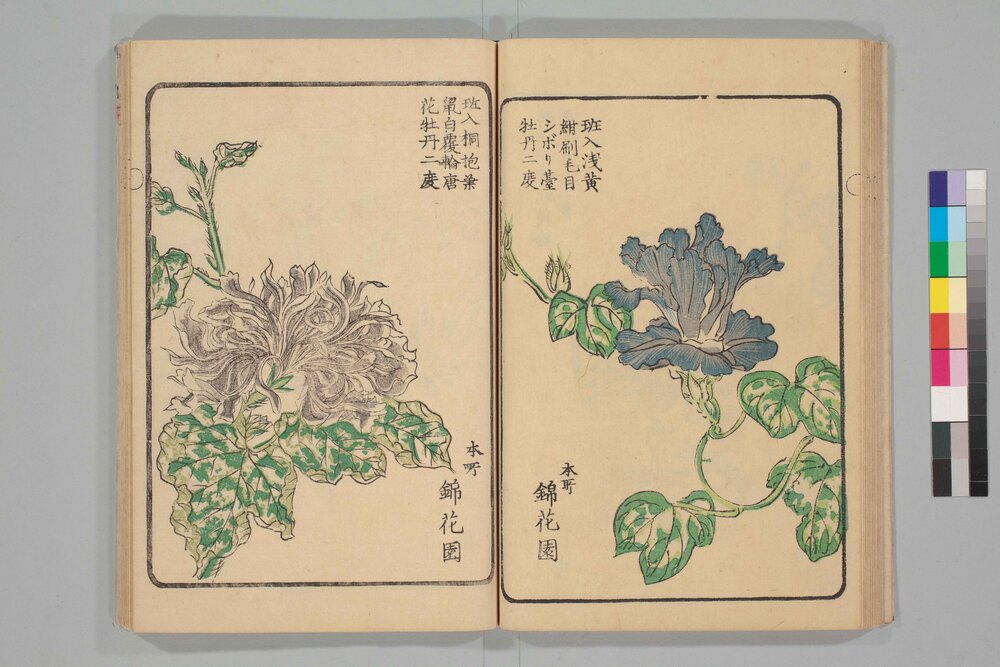 斑入浅黄
紺刷毛目
シボリ臺
牡丹二度
本所
錦花園
斑入桐抱葉
鼠白覆輪唐
花牡丹二度
本所
錦花園